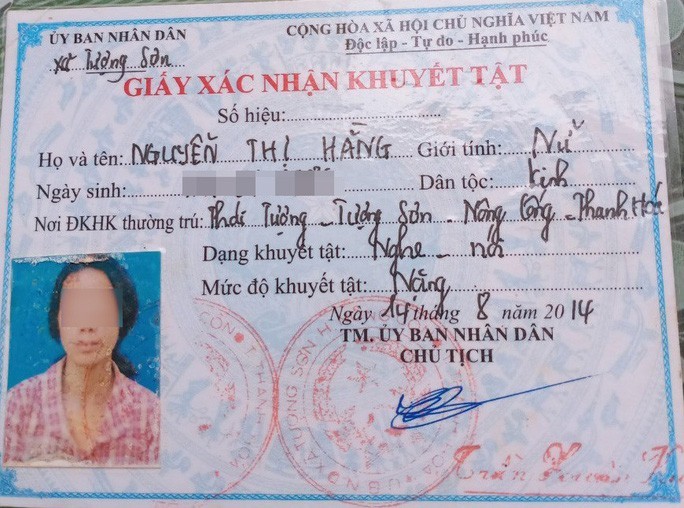 ỦY BAN NHÂN DÂN
xã Tượng Sơn
CỘNG HÒA XÃ HỘI CHỦ NGHĨA VIỆT NAM
Độc lập - Tự do - Hạnh phúc
GIẤY XÁC NHẬN KHUYẾT TẬT
Số hiệu:
Họ và tên: NGUYỄN THỊ HẰNG Giới tính: Nữ
Ngày sinh: Dân tộc: Kinh
Nơi ĐKHK thường trú: Tượng - Tượng Sơn - Nông Cống - Thanh Hóa
Dạng khuyết tật: Nghe - nói
Mức độ khuyết tật: Nặng
Ngày 14 tháng 8 năm 2014
TM. ỦY BAN NHÂN DÂN
CHỦ TỊCH
Trần Xuân